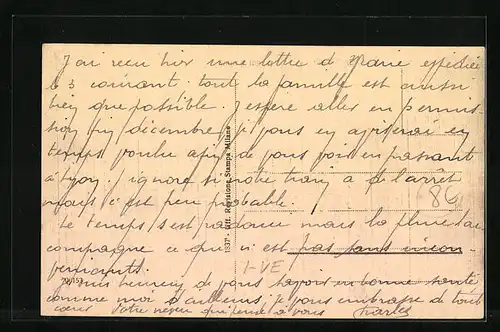 J'ai reçu hier une lettre d' Marie expédiée
le 3 courant. tout la famille est aussi
bien que possible. J'espère aller en permis-
sion fin décembre. Je vous en aviserai en
temps voulu afin de vous voir en passant
à Lyon. J'ignore si notre train a de l'arrêt
mais c'est peu probable.
Le temps s'est radouci mais la pluie l'ac
compagne ce qui n'est pas sans incon
vénients.
heureux de vous savoir en bonne santé
comme moi d'ailleurs, je vous embrasse de tout
cœur Votre neveu qui pense à vous Charles
1337 - Uff. Revisione Stampa Milano
86
I-VE